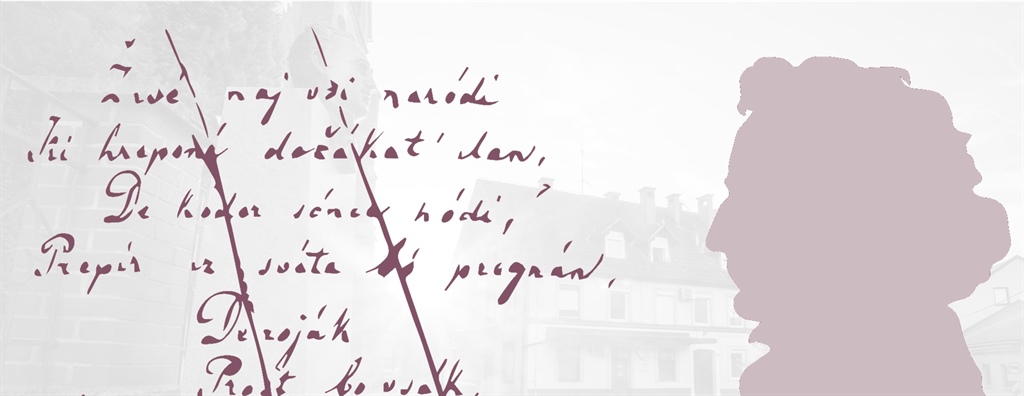 Živé naj vsi naródi
Ki hrepené dočákat' dan,
De koder sónce hódi,
Prepír iz svéta bó pregnán,
De roják
Prost bo vsák,